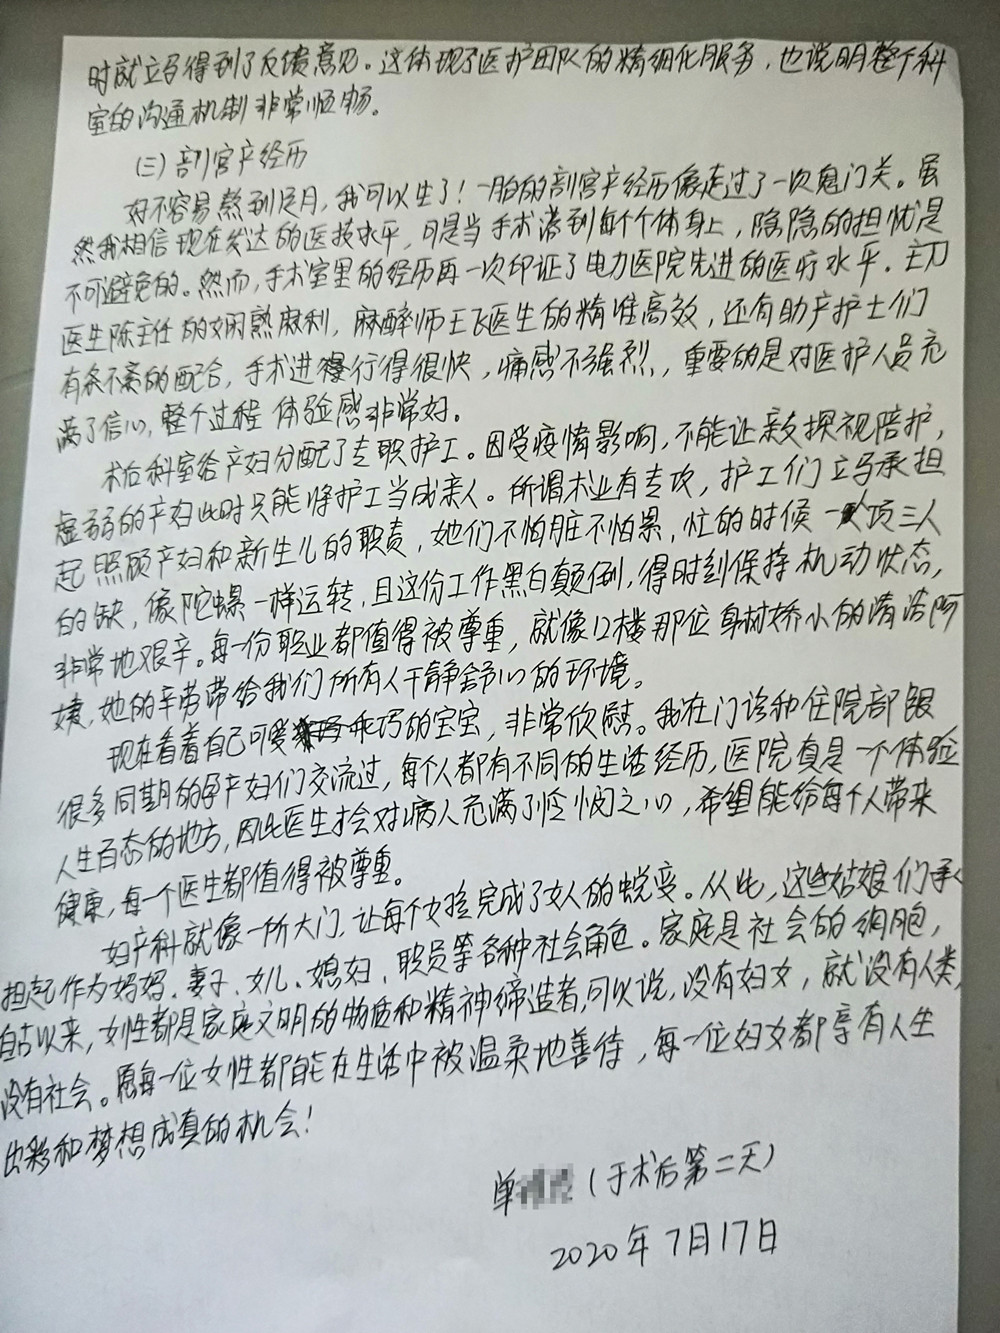 时就立马得到了反馈意见。这体现了医护团队的精细化服务,也说明整个科
室的沟通机制非常顺畅。
(三)剖宫产经历
好不容易熬到足月,我可以生了!一胎的剖宫产经历像走过了一次鬼门关。虽
然我相信现在发达的医技水平,可是当手术落到每个个体身上,隐隐的担忧是
不可避免的。然而,手术室里的经历再一次印证了电力医院先进的医疗水平。主刀
医生陈主任的娴熟麻利,麻醉师王飞医生的精准高效,还有助产护士们
有条不紊的配合,手术进行得很快,痛感不强烈,重要的是对医护人员充
满了信心,整个过程体验感非常好。
术后科室给产妇分配了专职护工。因受疫情影响,不能让亲友探视陪护,
虚弱的产妇此时只能将护工当成亲人。所谓术业有专攻,护工们立马承担
起照顾产妇和新生儿的职责,她们不怕脏不怕累,忙的时候一人顶三人
的缺,像陀螺一样运转,且这份工作黑白颠倒,得时刻保持机动状态,
非常地艰辛。每一份职业都值得被尊重,就像12楼那位身材娇小的清洁阿
姨,她的辛劳带给我们所有人干静舒心的环境。
现在看着自己可爱乖巧的宝宝,非常欣慰。我在门诊和住院部跟
很多同期的孕产妇们交流过,每个人都有不同的生活经历,医院真是一个体验
人生百态的地方,因此医生才会对病人充满了怜悯之心,希望能给每个人带来
健康,每一个医生都值得被尊重。
妇产科就像一所大门,让每个女孩完成了女人的蜕变。从此,这些姑娘们承
担起作为妈妈、妻子、女儿、媳妇、职员等各种社会角色。家庭是社会的细胞,
自古以来,女性都是家庭文明的物质和精神缔造者,可以说,没有妇女,就没有人类,
没有社会。愿每一位女性都能在生活中被温柔地善待,每一位妇女都享有人生
出彩和梦想成真的机会!
单(于术后第二天)
2020年7月17日